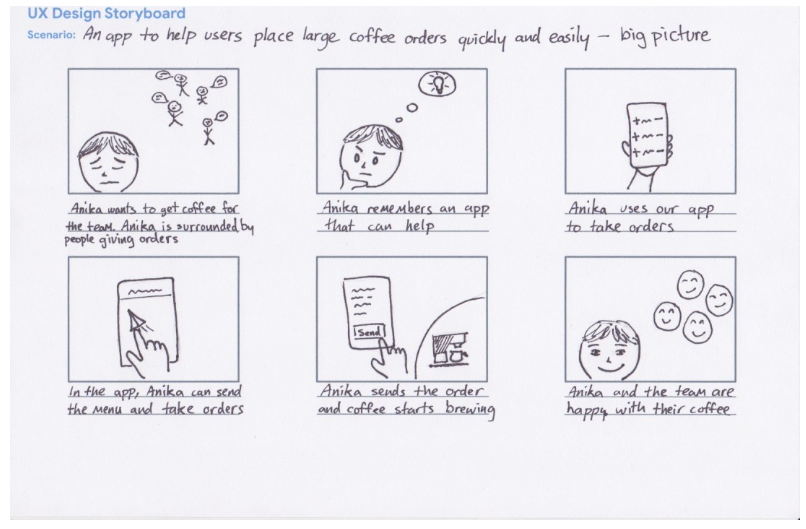 UX Design Storyboard
Scenario: An app to help users place large coffee orders quickly and easily – big picture
Anika wants to get coffee for
the team. Anika is surrounded by
people giving orders
Anika remembers an app
that can help
Anika uses our app
to take orders
In the app, Anika can send
the menu and take orders
Send
Anika sends the order
and coffee starts brewing
Anika and the team are
happy with their coffee